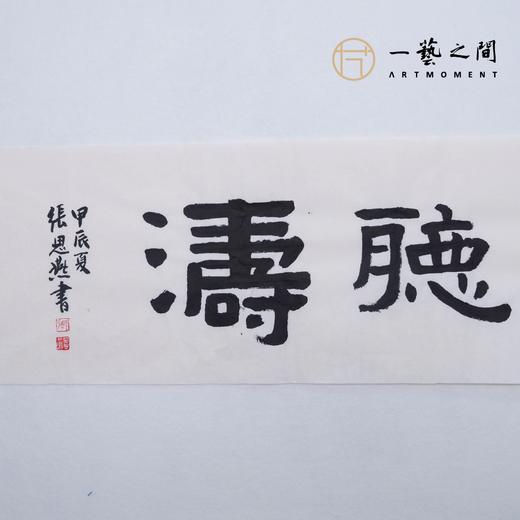 一藝之間
ARTMOMENT
聽濤
甲辰夏
張思燕書